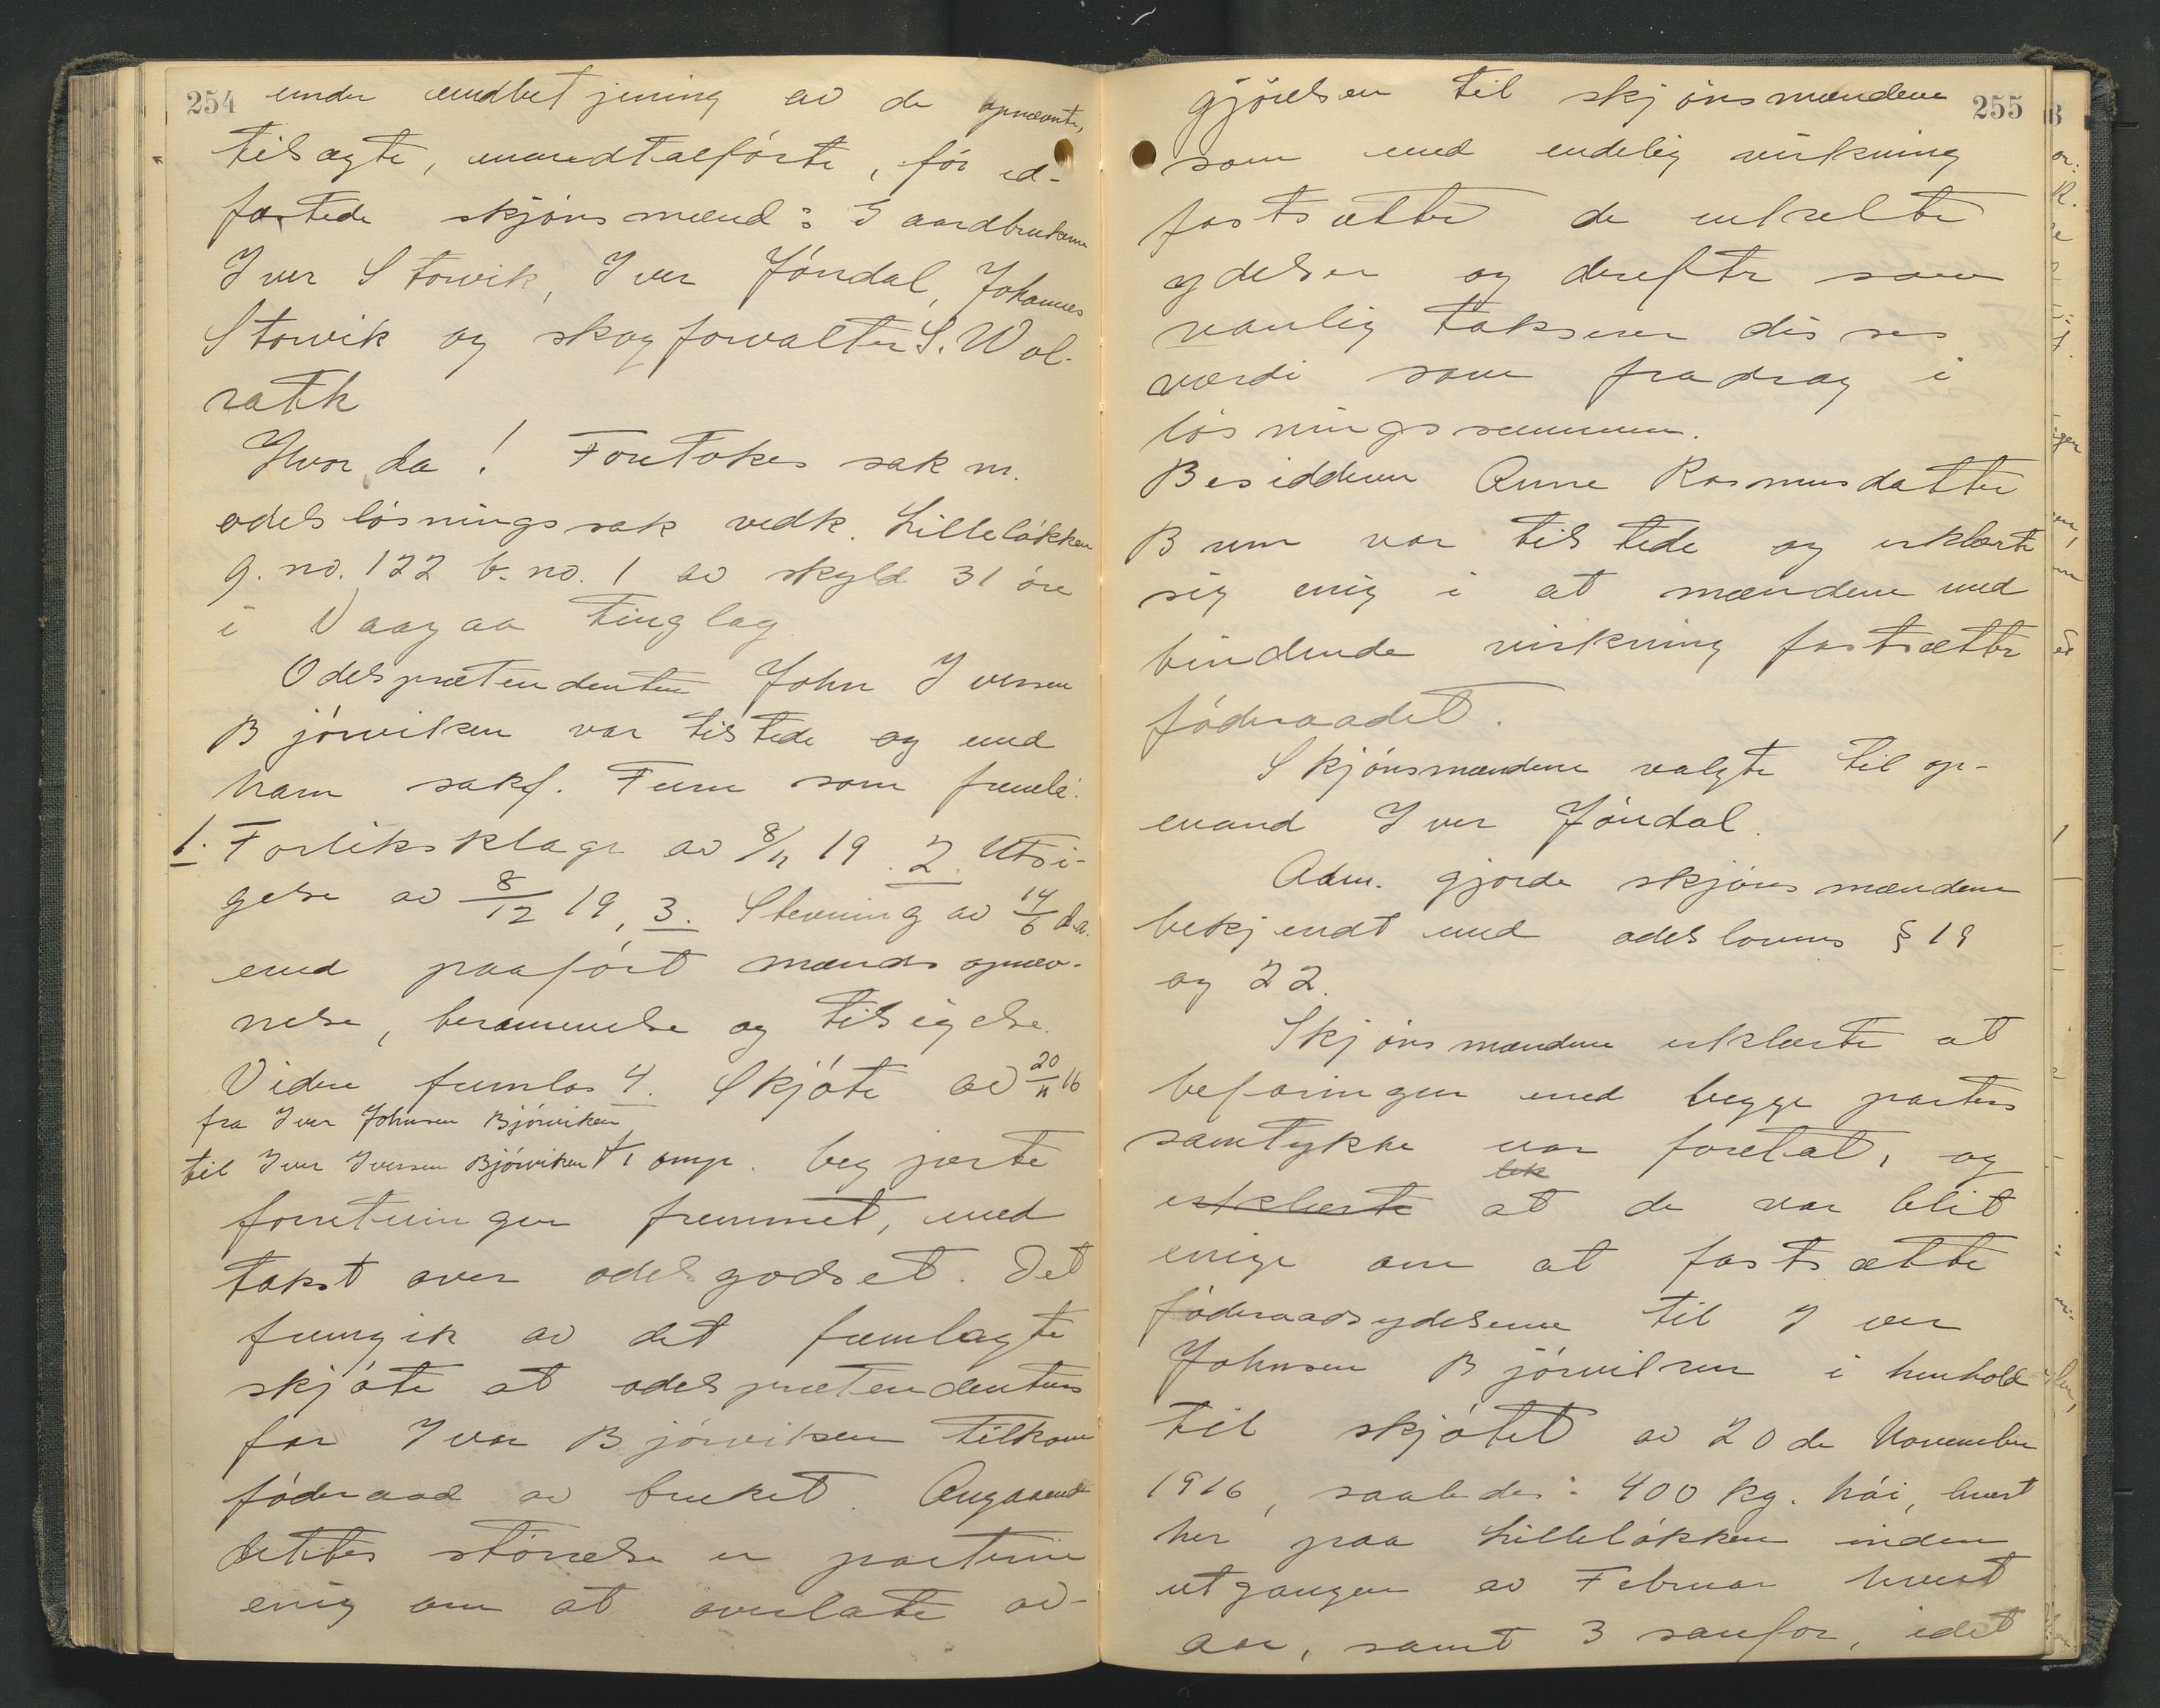 254
under medbetjening av de opnævnte,
tilsagte, mandtalførte, før ed-
fæstede skjønsmænd: Gaardbrukerne
Iver Storvik, Iver Jøndal, Johannes
Storvik og skogforvalter S. Wol-
rath
Hvorda! Foretokes sak nr.
odelsløsningssak vedk. Lilleløkken
g. no. 122 b. no. 1 av skyld 31 øre
i Vaagaa tinglag.
Odelsprætendenten John Iversen
Bjørviken var tilstede og med
ham sakf. Turn som fremla:
1. Forliksklage av 8/11 19 2. Utsi-
gelse av 8/12 19, 3. Stevning av 14/6 d.a.
med paaført mænds opnæv-
nelse, berammelse og tilsigelse.
Videre fremlas 4. Skjøte av 20/11 16
fra Iver Johnsen Bjørviken
til Iver Iversen Bjørviken begjærte
forretningen fremmet, med
takst over odelsgodset. Det
fremgik av det fremlagte
skjøte at odelsprætendentens
far Iver Bjørviken tilkom
føderaad av bruket. Angaaende
dettes størrelse er parterne
enig om at overlate av-
255
gjørelsen til skjønsmændene
som med endelig virkning
fastsætter de enkelte
ydelser og derefter som
vanlig takserer disses
værdi som fradrag i
løsningssummen.
Besidderen Anne Rasmusdatter
Brun var tilstede og erklærte
sig enig i at mændene med
bindende virkning fastsætter
føderaadet.
Skjønsmændene valgte til op-
mand Iver Jøndal.
Adm. gjorde skjønsmændene
bekjendt med odelslovens § 19
og 22.
Skjønsmændene erklærte at
befaringen med begge parters
samtykke var foretat, og
erklærte at de var blit
enige om at fastsætte
føderaadsydelserne til Iver
Johnsen Bjørviken i henhold
til skjøtet av 20de November
1916, saaledes: 400 kg. høi, hvert
her paa Lilleløkken inden
utgangen av Februar hvert
aar, samt 3 sauefor, idet